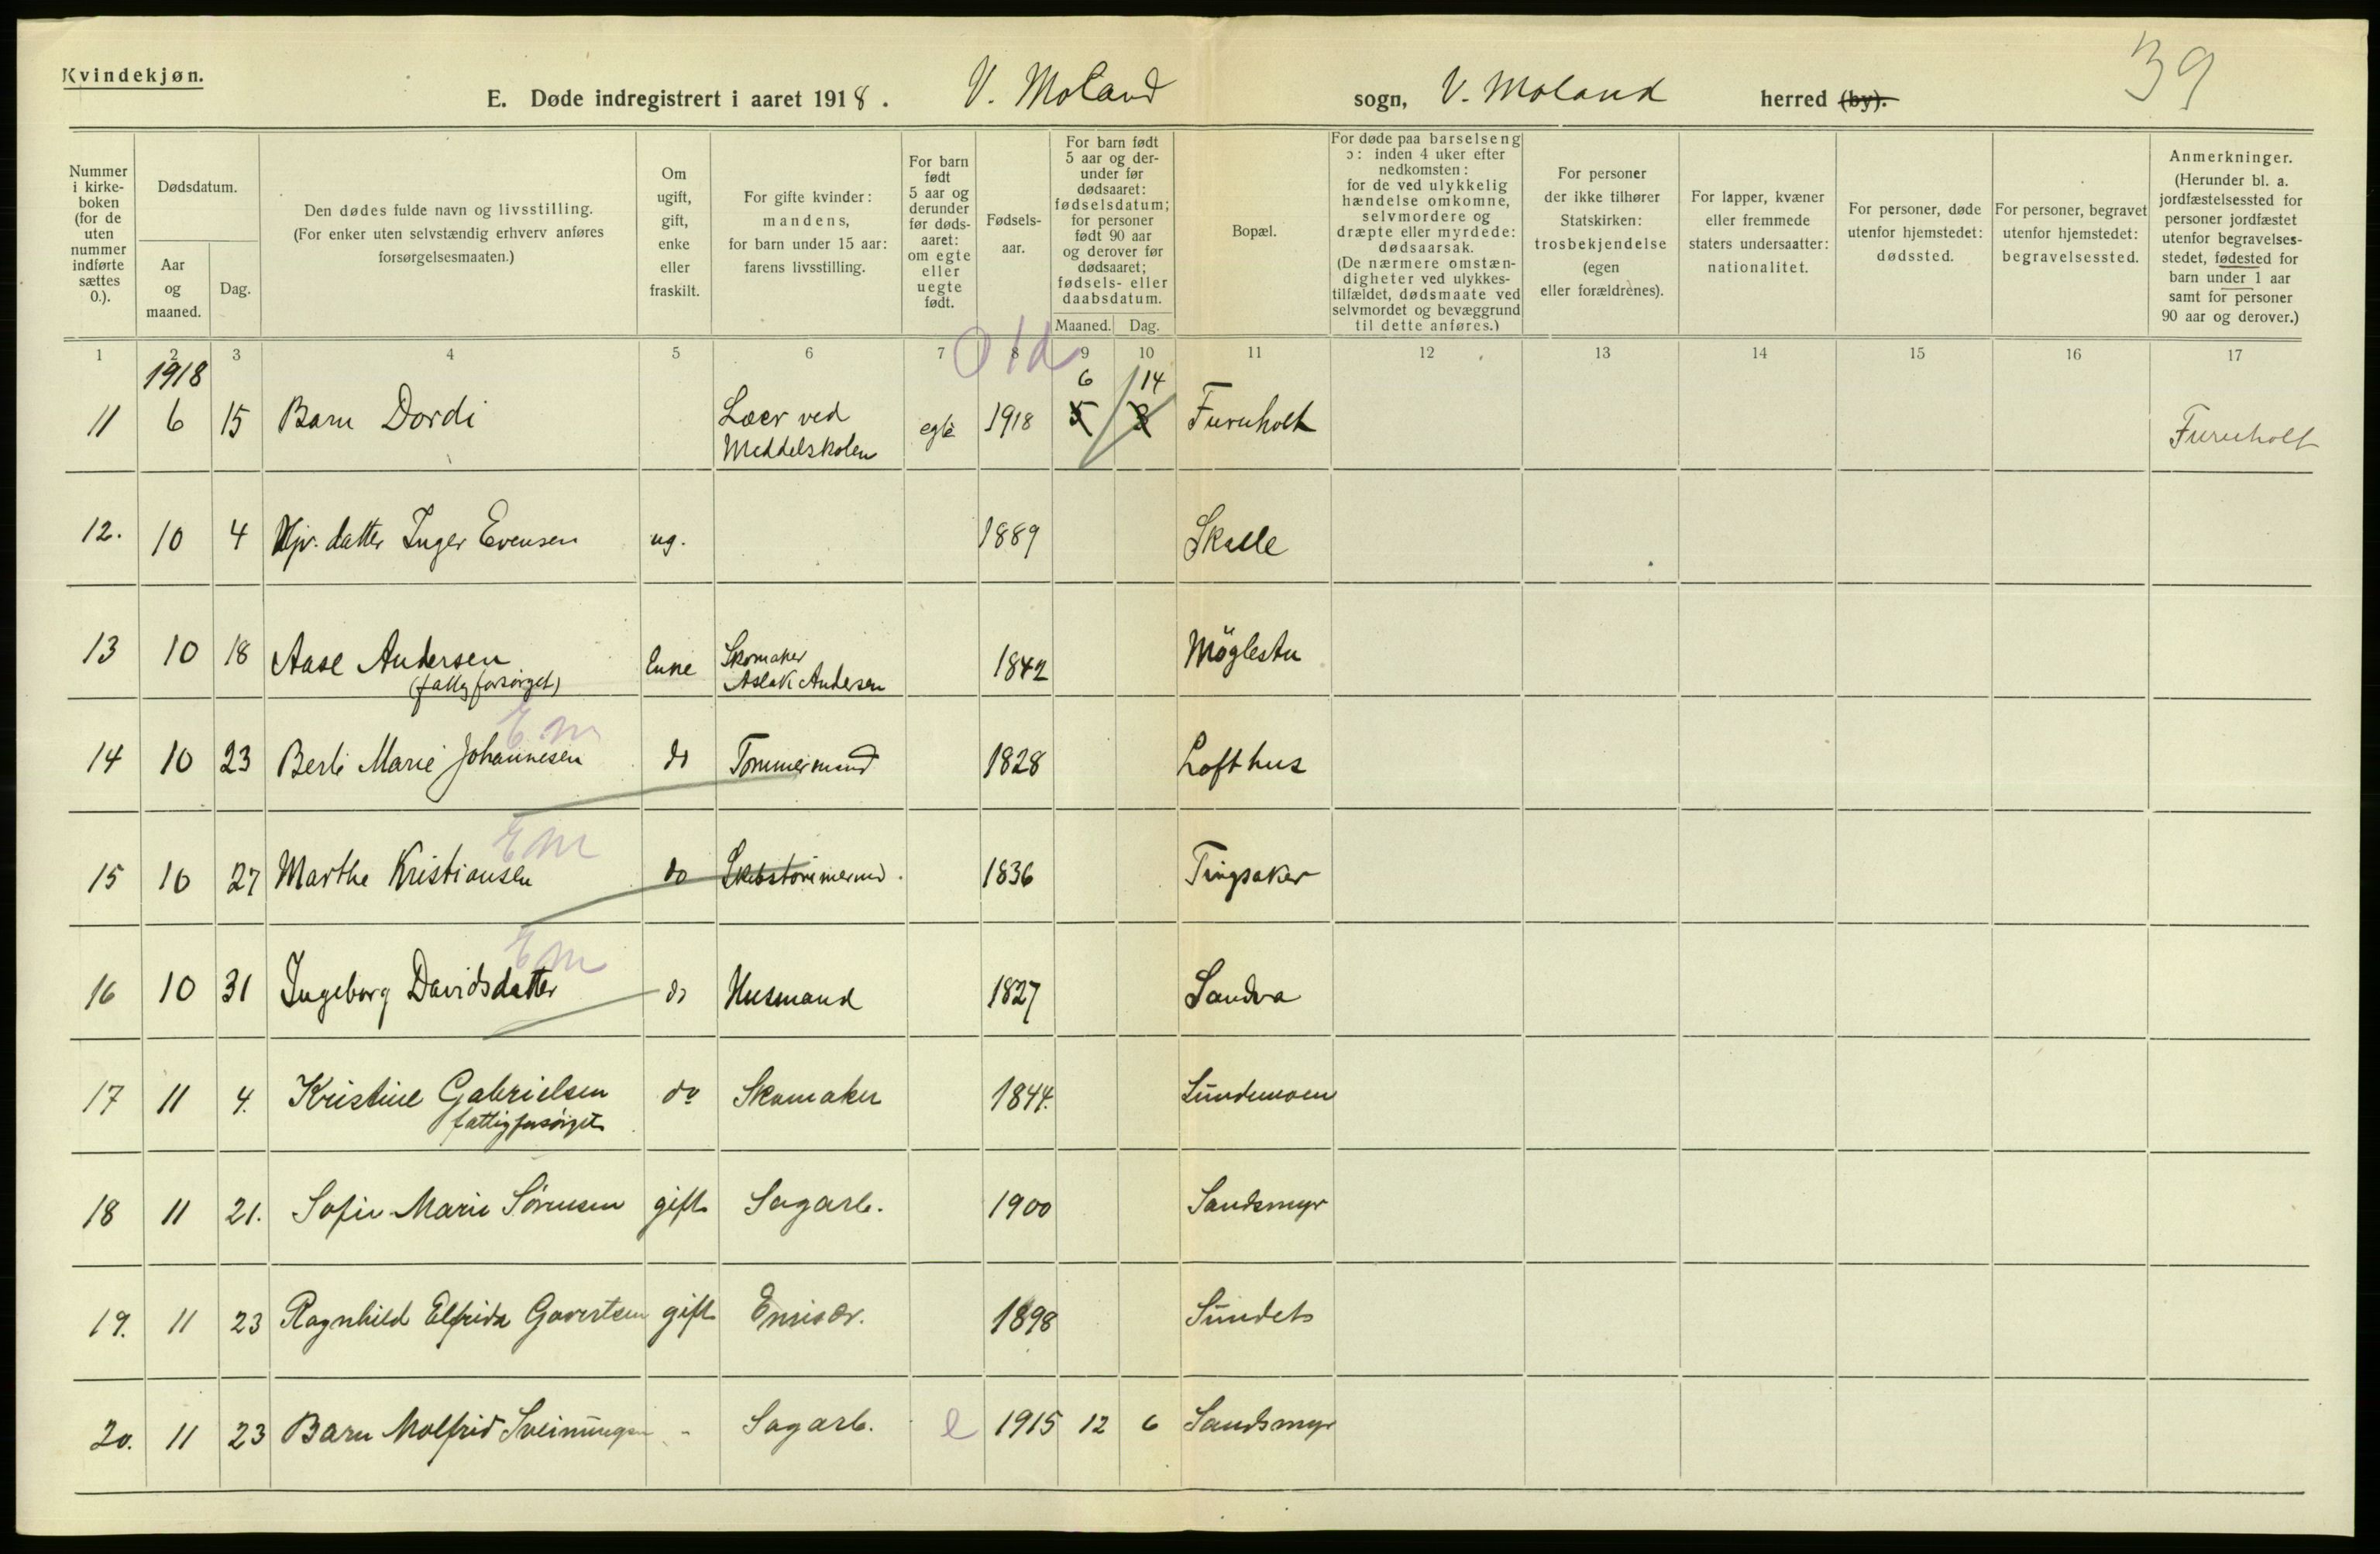 Kvindekjøn.
E. Døde indregistrert i aaret 1918. V. Moland sogn, V. Moland herred (by).
39
Nummer i kirkeboken (for de uten nummer indførte sættes 0.).
Dødsdatum.
Aar og maaned.
Dag.
Den dødes fulde navn og livsstilling.
(For enker uten selvstændig erhverv anføres
forsørgelsesmaaten.)
Om ugift, gift, enke eller fraskilt.
For gifte kvinder:
mandens,
for barn under 15 aar:
farens livsstilling.
For barn født 5 aar og derunder før dødsaaret: om egte eller uegte født.
Fødselsaar.
For barn født 5 aar og derunder før dødsaaret: fødselsdatum; for personer født 90 aar og derover før dødsaaret; fødsels- eller daabsdatum.
Maaned. Dag.
Bopæl.
For døde paa barselseng
ɔ: inden 4 uker efter
nedkomsten:
for de ved ulykkelig
hændelse omkomne,
selvmordere og
dræpte eller myrdede:
dødsaarsak.
(De nærmere omstændigheter ved ulykkestilfældet, dødsmaate ved
selvmordet og bevæggrund
til dette anføres.)
For personer
der ikke tilhører
Statskirken:
trosbekjendelse
(egen
eller forældrenes).
For lapper, kvæner
eller fremmede
staters undersaatter:
nationalitet.
For personer, døde
utenfor hjemstedet:
dødssted.
For personer, begravet
utenfor hjemstedet:
begravelsessted.
Anmerkninger.
(Herunder bl. a.
jordfæstelsessted for
personer jordfæstet
utenfor begravelsesstedet, fødested for
barn under 1 aar
samt for personer
90 aar og derover.)
1 2 3 4 5 6 7 8 9 10 11 12 13 14 15 16 17
1918
11 6 15 Barn Dordi Lær ved Meddelskolen egte 1918 6 14 Furuholt Furuholt
12. 10 4 datter Inger Evensen ug. 1889 Skalle
13 10 18 Aase Andersen (fattigforsörget) Enke Skomaker Aslak Andersen 1842 Möglestu
14 10 23 Berte Marie Johannesen do Tömmermand 1828 Lofthus
Em
15 10 27 Marthe Kristiansen do Skibstömmermd. 1836 Tingsaker
Em
16 10 31 Ingeborg Davidsdatter do Husmand 1827 Sandva
Em
17 11 4. Kristine Gabrielsen fattigforsörget do Skomaker 1844. Sundemoen
18 11 21. Sofie Marie Sörensen gift Sagarb. 1900 Sandsmyr
19. 11 23 Ragnhild Elfrida Govertsen gift Emisær. 1898 Sundet
20. 11 23 Barn Molfrid Sveinungsen - Sagarb. e 1915 12 6 Sandsmyr